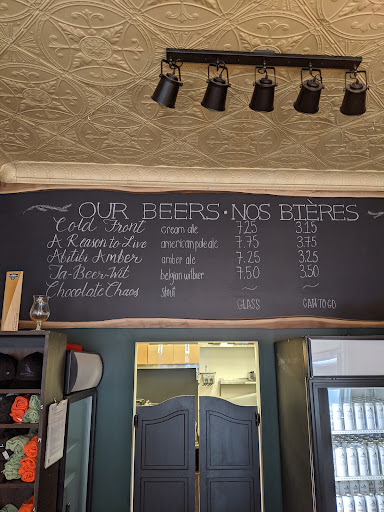 OUR BEERS • NOS BIÈRES
Cold Front cream ale 7.25 3.15
A Reason to Live american pale ale 7.75 3.75
Abitibi Amber amber ale 7.25 3.25
Ta-Beer-Wit belgian witbier 7.50 3.50
Chocolate Chaos stout ~ ~
GLASS CAN TO GO